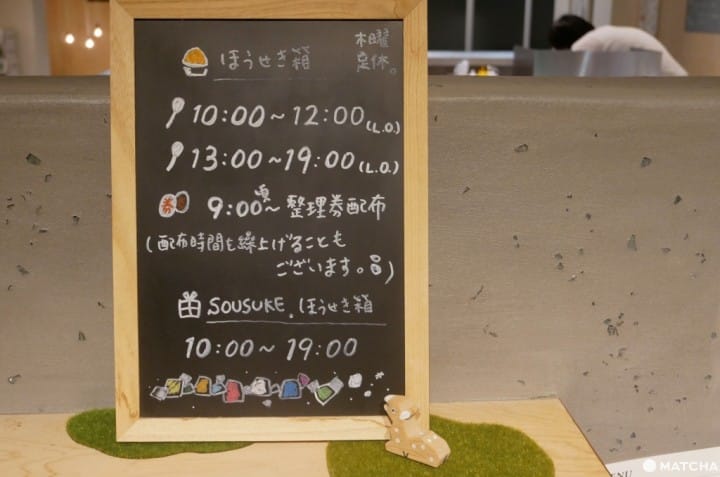 ほうせき箱
木曜
定休。
10:00~12:00(L.O.)
13:00~19:00(L.O.)
券 9:00頃~ 整理券配布
(配布時間も繰上げることも
ございます。)
SOUSUKE. ほうせき箱
10:00~19:00
MENU
MATCHA